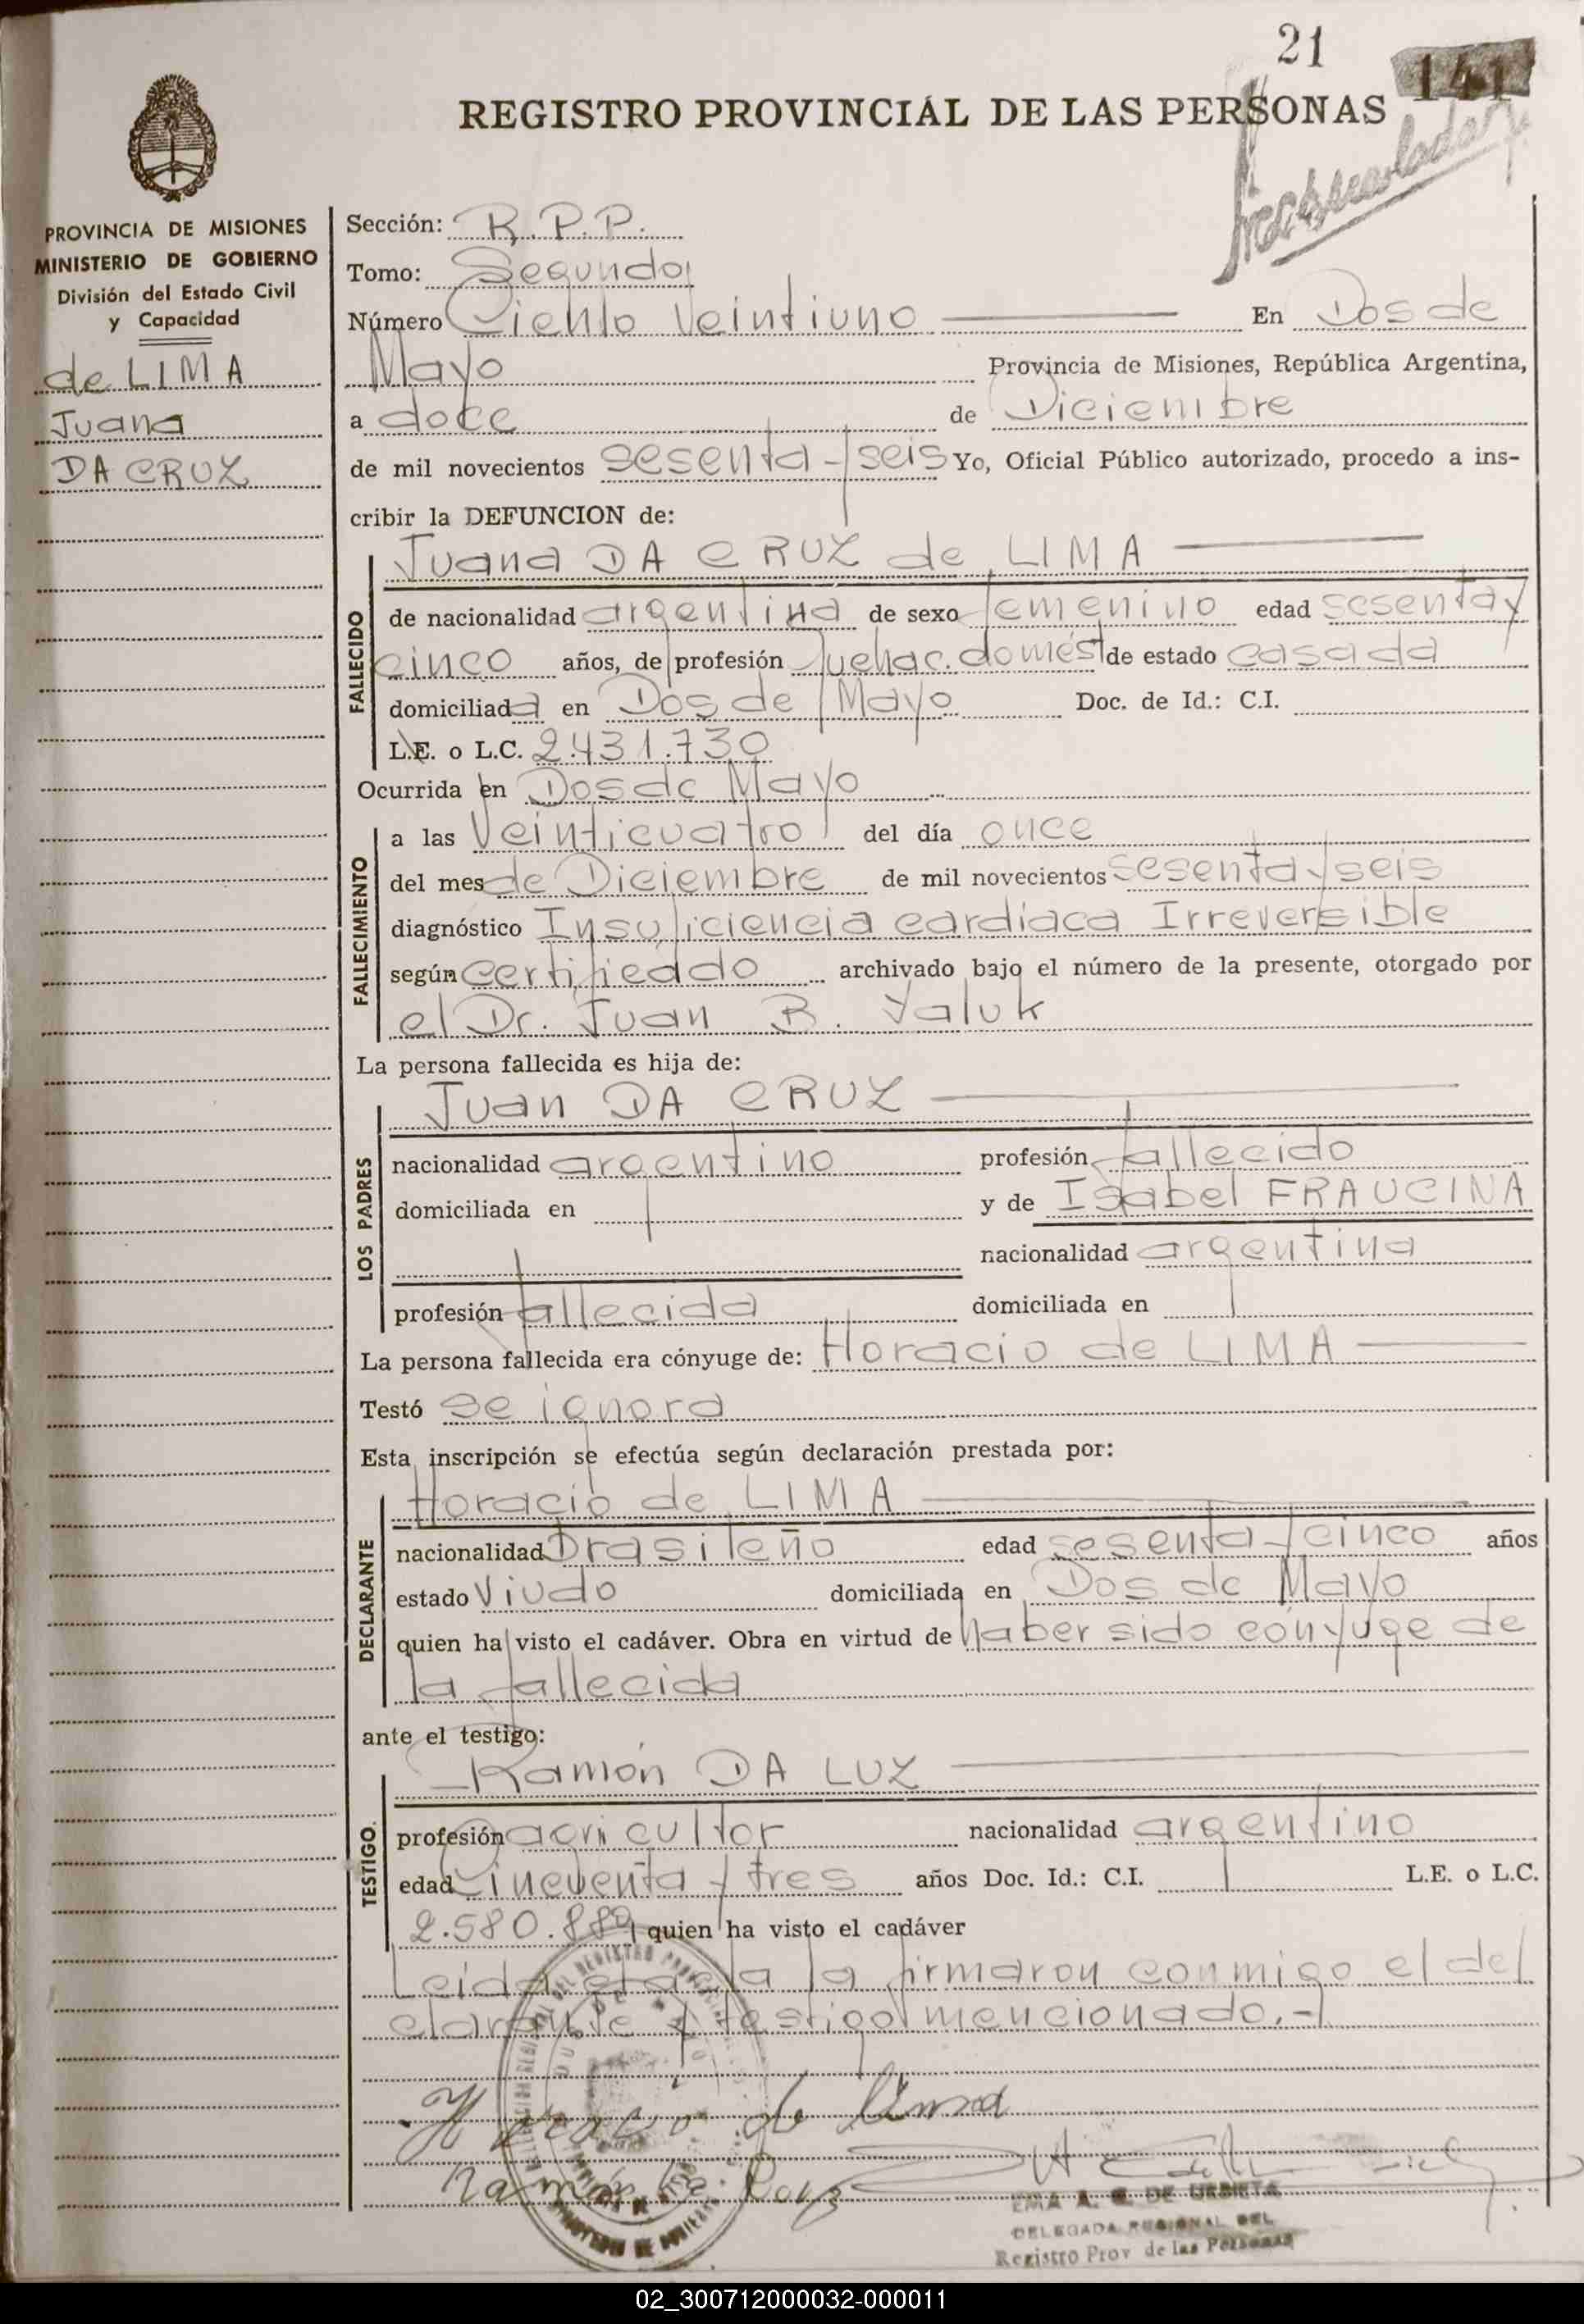 21
141
REGISTRO PROVINCIAL DE LAS PERSONAS
PROVINCIA DE MISIONES
MINISTERIO DE GOBIERNO
División del Estado Civil
y Capacidad
de LIMA
Juana
DA CRUZ
Sección: R.P.P.
Tomo: Segundo
Número Ciento Veintiuno En Dos de
Mayo Provincia de Misiones, República Argentina,
a doce de Diciembre
de mil novecientos sesenta y seis Yo, Oficial Público autorizado, procedo a ins-
cribir la DEFUNCION de:
Juana DA CRUZ de LIMA
FALLECIDO
de nacionalidad argentina de sexo femenino edad sesenta y
cinco años, de profesión quehac. domést de estado casada
domiciliada en Dos de Mayo Doc. de Id.: C.I.
L.E. o L.C. 2.431.730
Ocurrida en Dos de Mayo
FALLECIMIENTO
a las Veinticuatro del día once
del mes de Diciembre de mil novecientos sesenta y seis
diagnóstico Insuficiencia cardíaca Irreversible
según certificado archivado bajo el número de la presente, otorgado por
el Dr. Juan B. Yaluk
La persona fallecida es hija de:
Juan DA CRUZ
LOS PADRES
nacionalidad argentino profesión fallecido
domiciliada en y de Isabel FRAUCINA
nacionalidad argentina
profesión fallecida domiciliada en
La persona fallecida era cónyuge de: Horacio de LIMA
Testó se ignora
Esta inscripción se efectúa según declaración prestada por:
Horacio de LIMA
DECLARANTE
nacionalidad brasileño edad sesenta y cinco años
estado Viudo domiciliada en Dos de Mayo
quien ha visto el cadáver. Obra en virtud de haber sido cónyuge de
la fallecida
ante el testigo:
Ramón DA LUZ
TESTIGO.
profesión agricultor nacionalidad argentino
edad Cincuenta y tres años Doc. Id.: C.I. L.E. o L.C.
2.580.889 quien ha visto el cadáver
Leida el acta la firmaron conmigo el de
clarante y testigo mencionado.-
Horacio de Lima
Ramón
EMA A. DE URBIETA
DELEGADA REGIONAL DEL
Registro Prov de las Personas
02_300712000032-000011